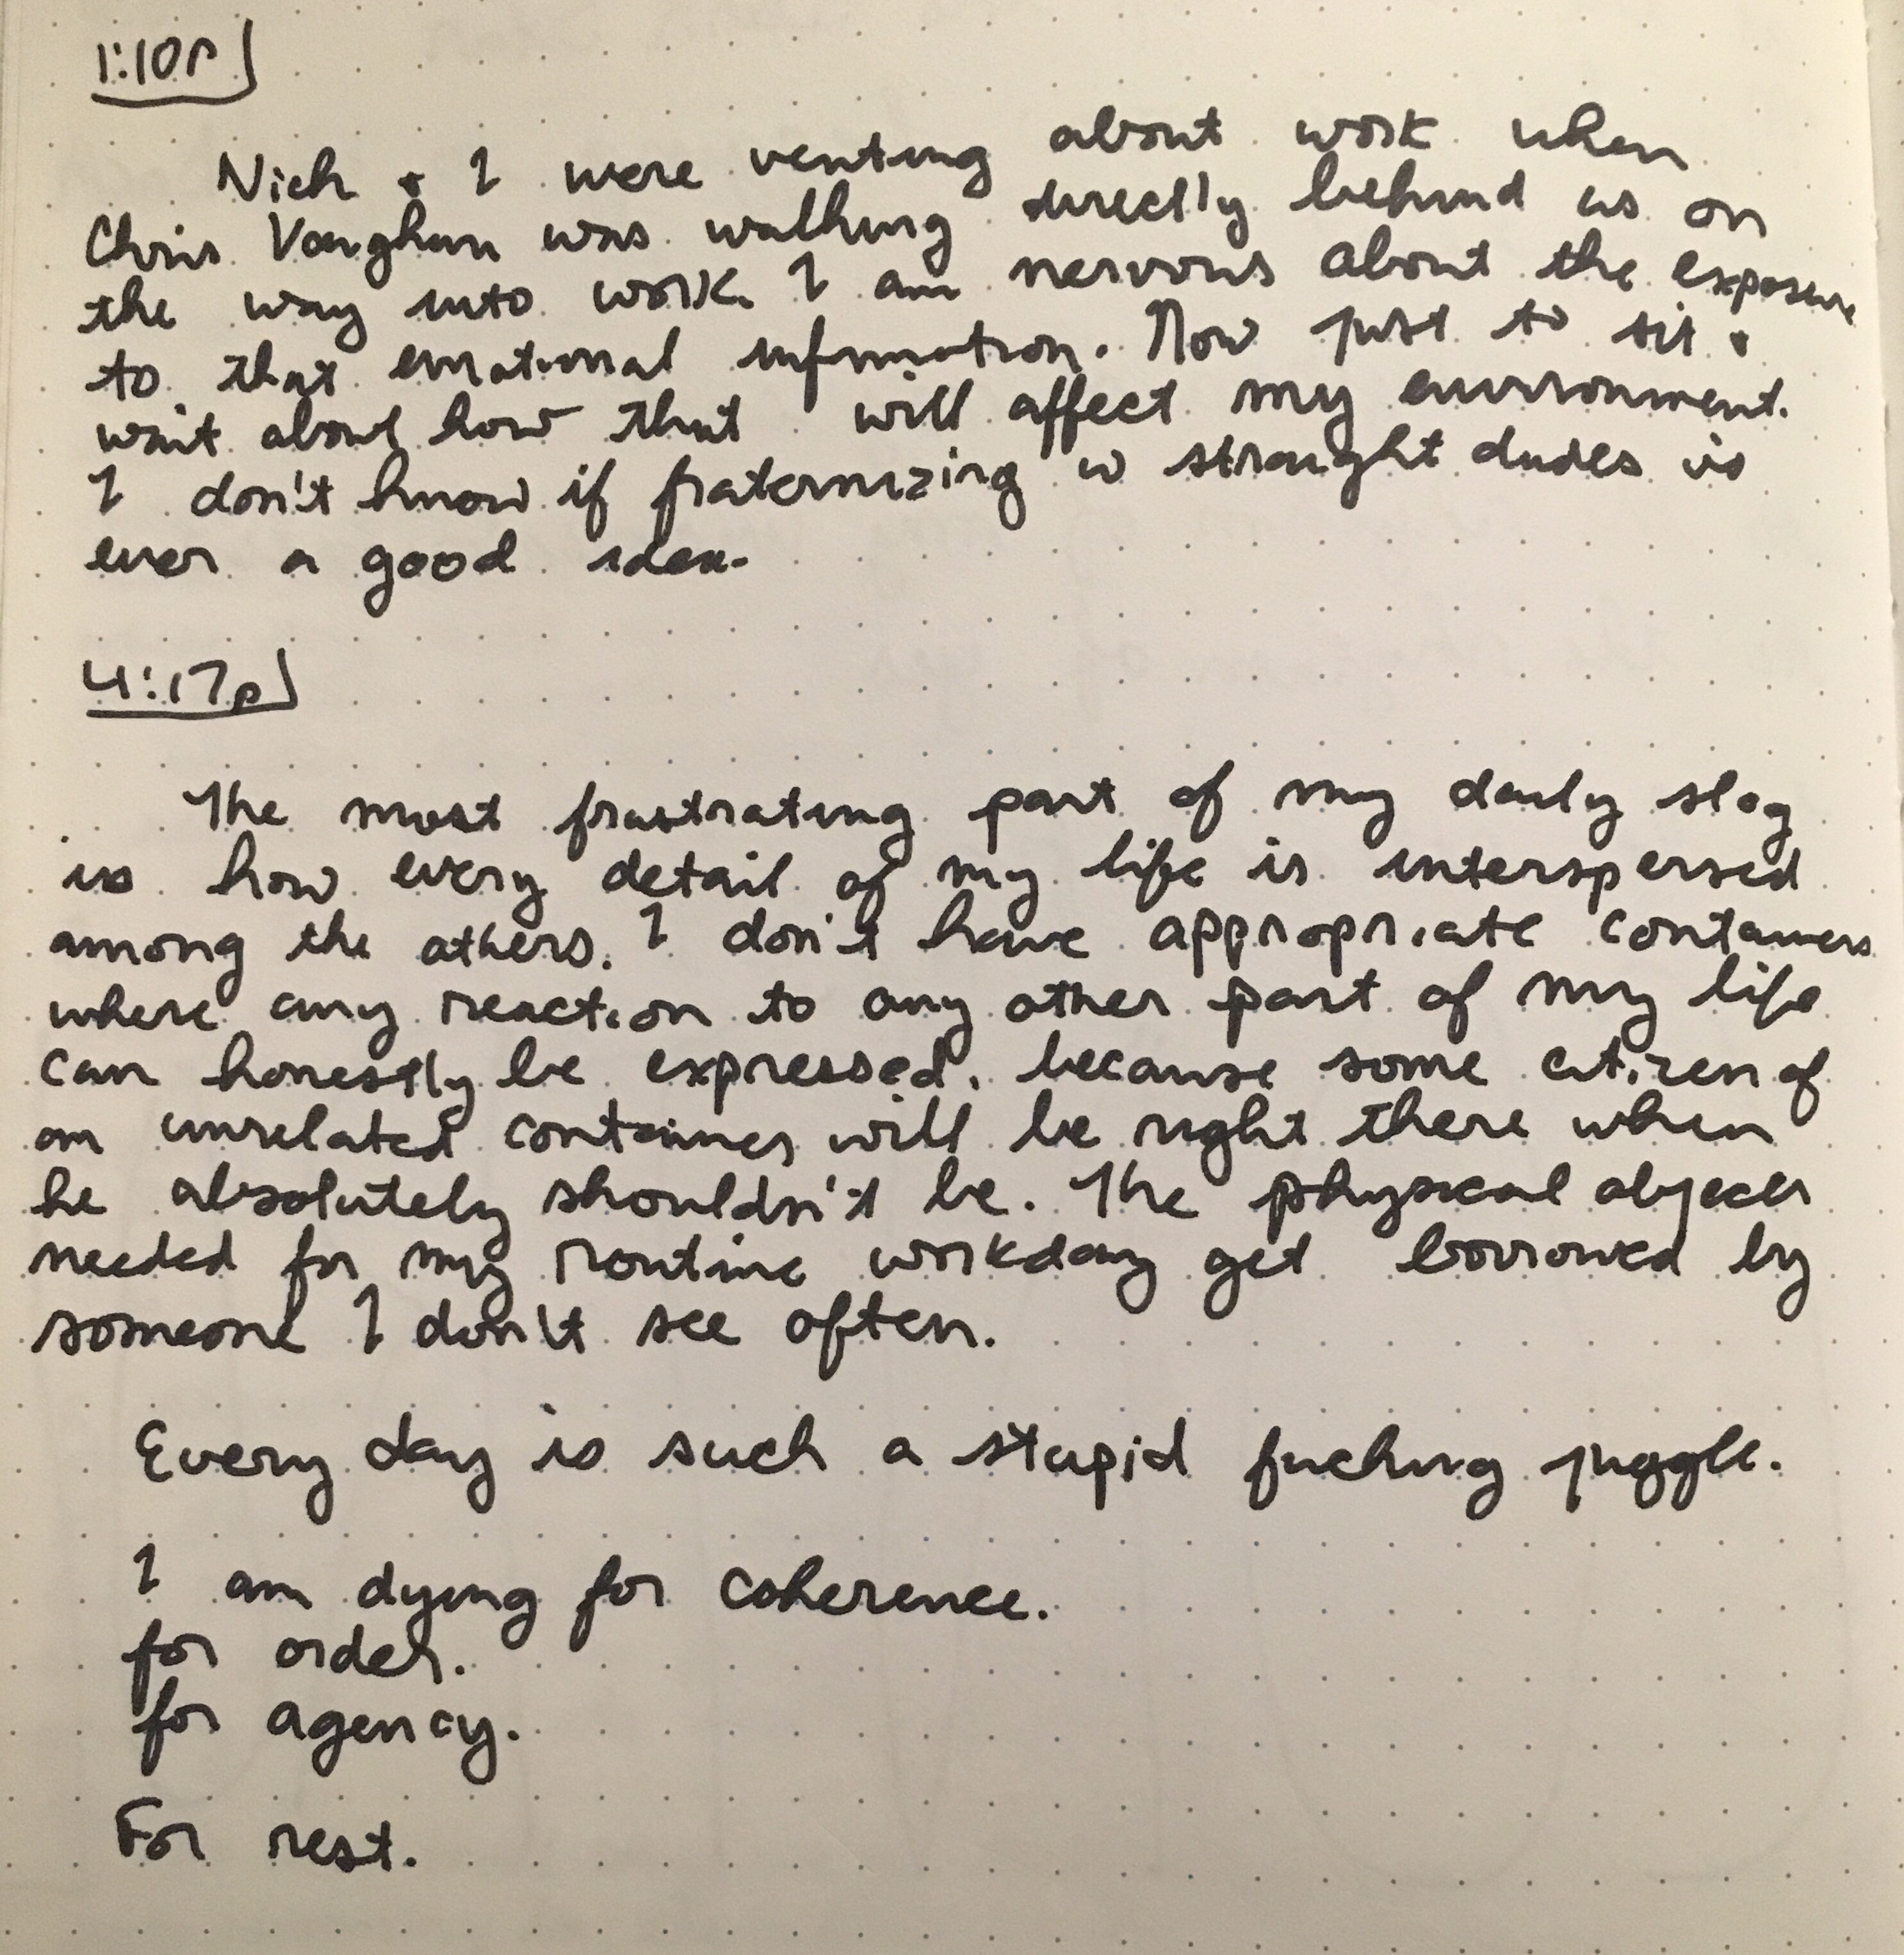 1:10p
Nick + I were venting about work when
Chris Vaughan was walking directly behind us on
the way into work. I am nervous about the exposure
to that emotional information. Now just to sit +
wait about how that will affect my environment.
I don't know if fraternizing w straight dudes is
ever a good idea.
4:17p
The most frustrating part of my daily slog
is how every detail of my life is interspersed
among the others. I don't have appropriate containers
where any reaction to any other part of my life
can honestly be expressed, because some citizen of
an unrelated container will be right there when
he absolutely shouldn't be. The physical objects
needed for my routine workday get borrowed by
someone I don't see often.
Every day is such a stupid fucking juggle.
I am dying for coherence.
for order.
for agency.
For rest.